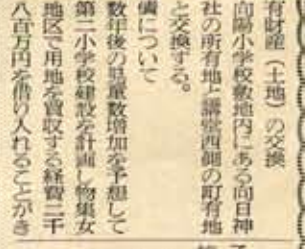 有財産（土地）の交換
向陽小学校敷地内にある向日神
社の所有地と講堂西側の町有地
と交換する。
備について
数年後の児童数増加を予想して
第二小学校建設を計画し物集女
地区で用地を買収する経費二千
八百万円を借り入れることがき